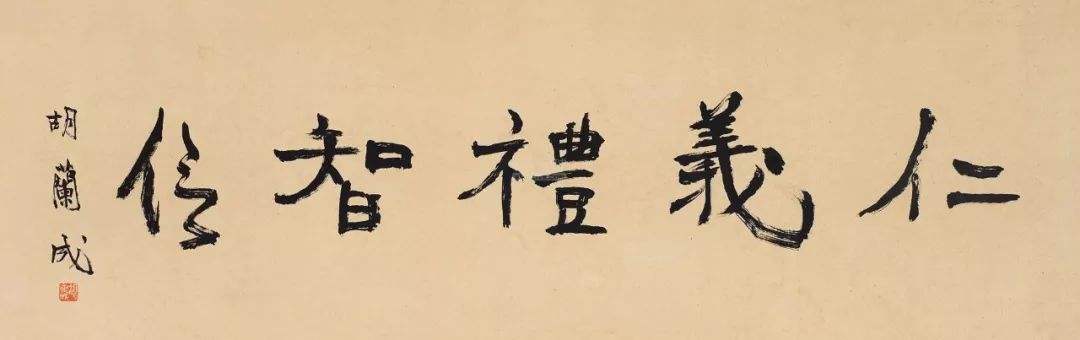 仁義禮智信
胡蘭成